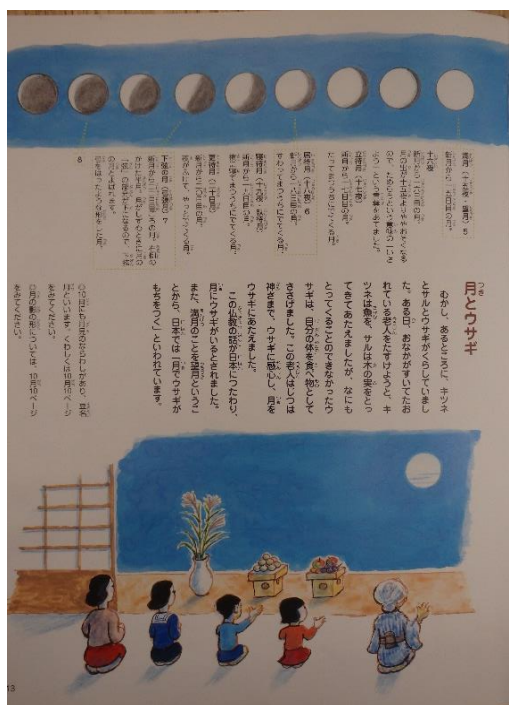 満月（十五夜・望月）5
新月から一五日目の月。
十六夜
新月から一六日目の月。
月の出が十五夜よりややおそくなる
ので、ためらうという意味の「いざ
よう」という言葉をあてました。
立待月（十七夜）
新月から一七日目の月。
たってまつうちにでてくる月。
居待月（十八夜）6
新月から一八日目の月。
すわってまつうちにでてくる月。
寝待月（十九夜・臥待月）
新月から一九日目の月。
寝て
まつうちにでてくる月。
更待月（二十日月）
新月から二〇日目の月。
夜がふけて、やっとでてくる月。
下弦の月（下弦月）7
「弦」の部分が下になるので、下弦
の月とよばれます。
8
月とウサギ
むかし、あるところに、キツネ
とサルとウサギがくらしていまし
た。ある日、おなかがすいてたお
れている老人をたすけようと、キ
ツネは魚を、サルは木の実をとっ
てきてあたえましたが、なにも
とってくることのできなかったウ
サギは、自分の体を食べ物として
ささげました。この老人はじつは
神さまで、ウサギに感心し、月を
ウサギにあたえました。
この仏教の話が日本につたわり、
月にウサギがいるとされました。
また、満月のことを望月というこ
とから、日本では「月でウサギが
もちをつく」といわれています。
◎10月にも月見のならわしがあり、豆名
月といいます。くわしくは10月10ページ
をみてください。
◎月の影の形については、10月10ページ
をみてください。
13